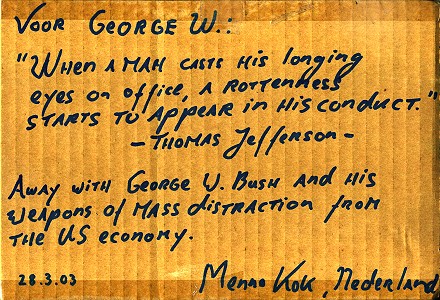 VOOR GEORGE W.:
"WHEN A MAN CASTS HIS longing
eyes on office, A ROTTENNESS
STARTS TO APPEAR in HIS CONDUCT."
- THOMAS Jefferson -
AWAY WITH GEORGE W. BUSH AND HIS
WEAPONS OF MASS DISTRACTION FROM
THE US economy.
28.3.03 Menno Kok, Nederland